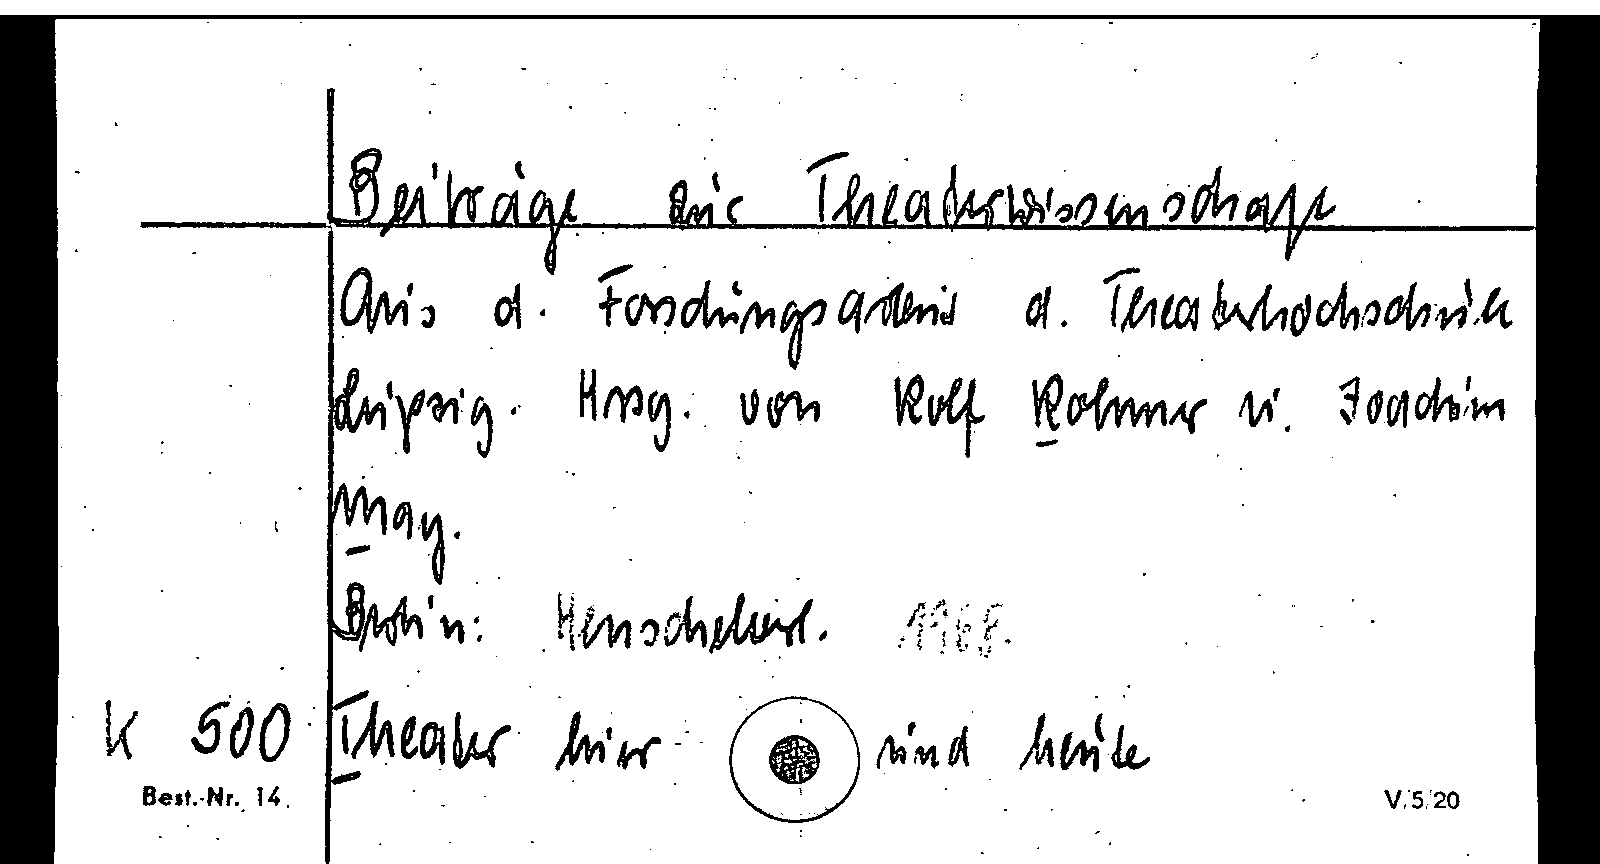 Beiträge zur Theaterwissenschaft
Aus d. Forschungsarbeit d. Theaterhochschule
Leipzig. Hrsg. von Rolf Rohmer u. Joachim
May.
Berlin: Henschelverl. 1968.
K 500 Theater hier und heute
Best.-Nr. 14. V/5/20